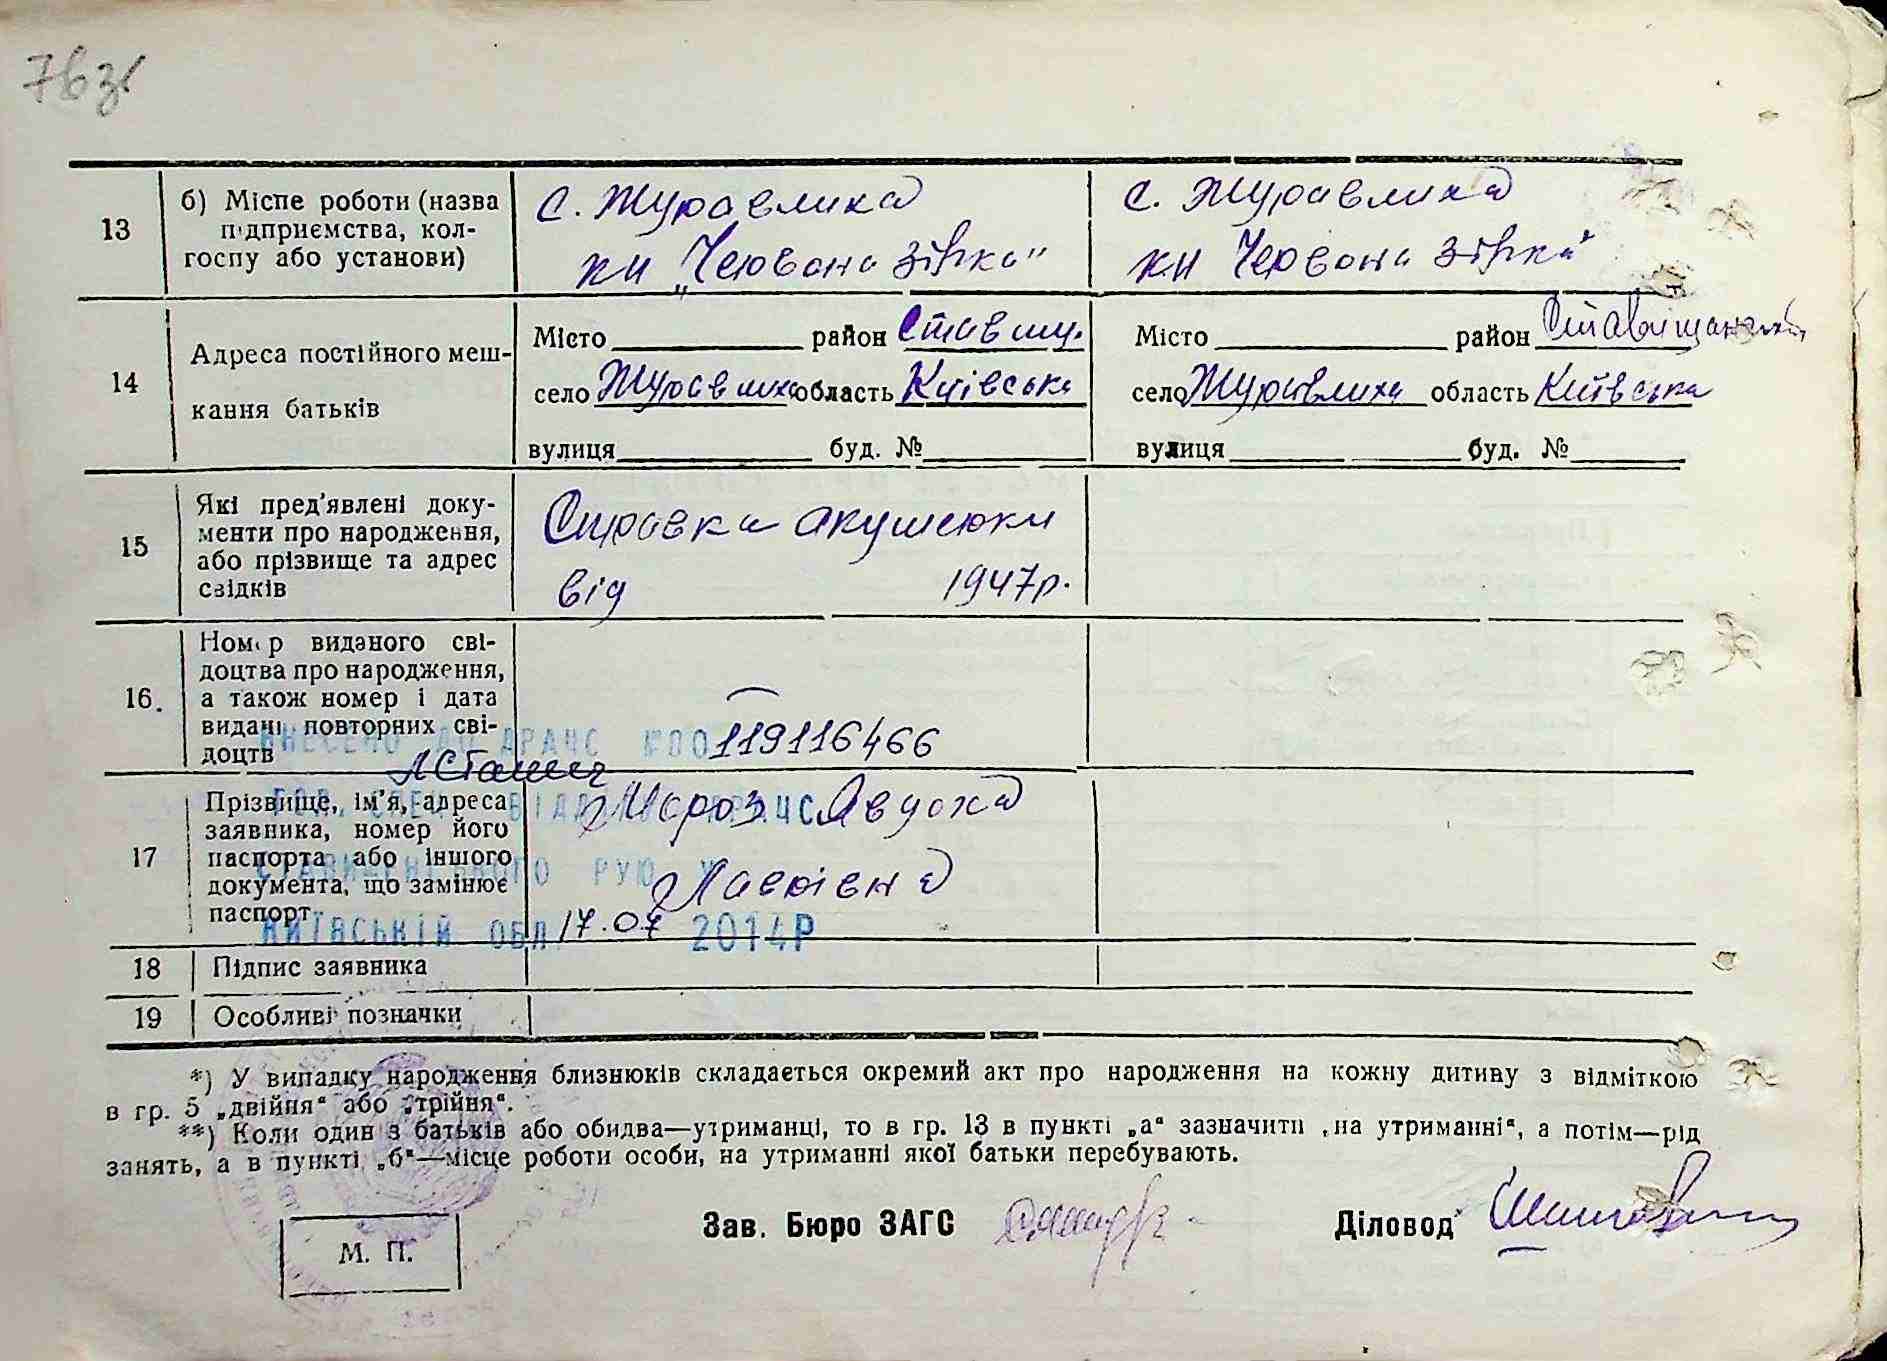 76зв
13
б) Місце роботи (назва
підприємства, кол-
госпу або установи)
с. Журавлиха
кп „Червона зірка"
с. Журавлиха
кп Червона зірка"
14
Адреса постійного меш-
кання батьків
Місто район Ставищ.
село Журавлиха область Київська
вулиця буд. №
Місто район Ставищанський
село Журавлиха область Київська
вулиця буд. №
15
Які пред'явлені доку-
менти про народження,
або прізвище та адрес
свідків
Справка акушерки
від 1947р.
16.
Номер виданого сві-
доцтва про народження,
а також номер і дата
видачі повторних сві-
доцтв
ВНЕСЕНО ДО ДРАЦС
119116466
17
Прізвище, ім'я, адреса
заявника, номер його
паспорта або іншого
документа, що замінює
паспорт
Мороз Явдоха
Лаврівна
СТАВИЩЕНСЬКОГО РУЮ У
КИЇВСЬКІЙ ОБЛ 17.07 2014Р
18
Підпис заявника
19
Особливі позначки
*) У випадку народження близнюків складається окремий акт про народження на кожну дитину з відміткою
в гр. 5 „двійня" або „трійня".
**) Коли один з батьків або обидва—утриманці, то в гр. 13 в пункті „а" зазначити „на утриманні", а потім—рід
занять, а в пункті „б"—місце роботи особи, на утриманні якої батьки перебувають.
Зав. Бюро ЗАГС
Діловод
М. П.